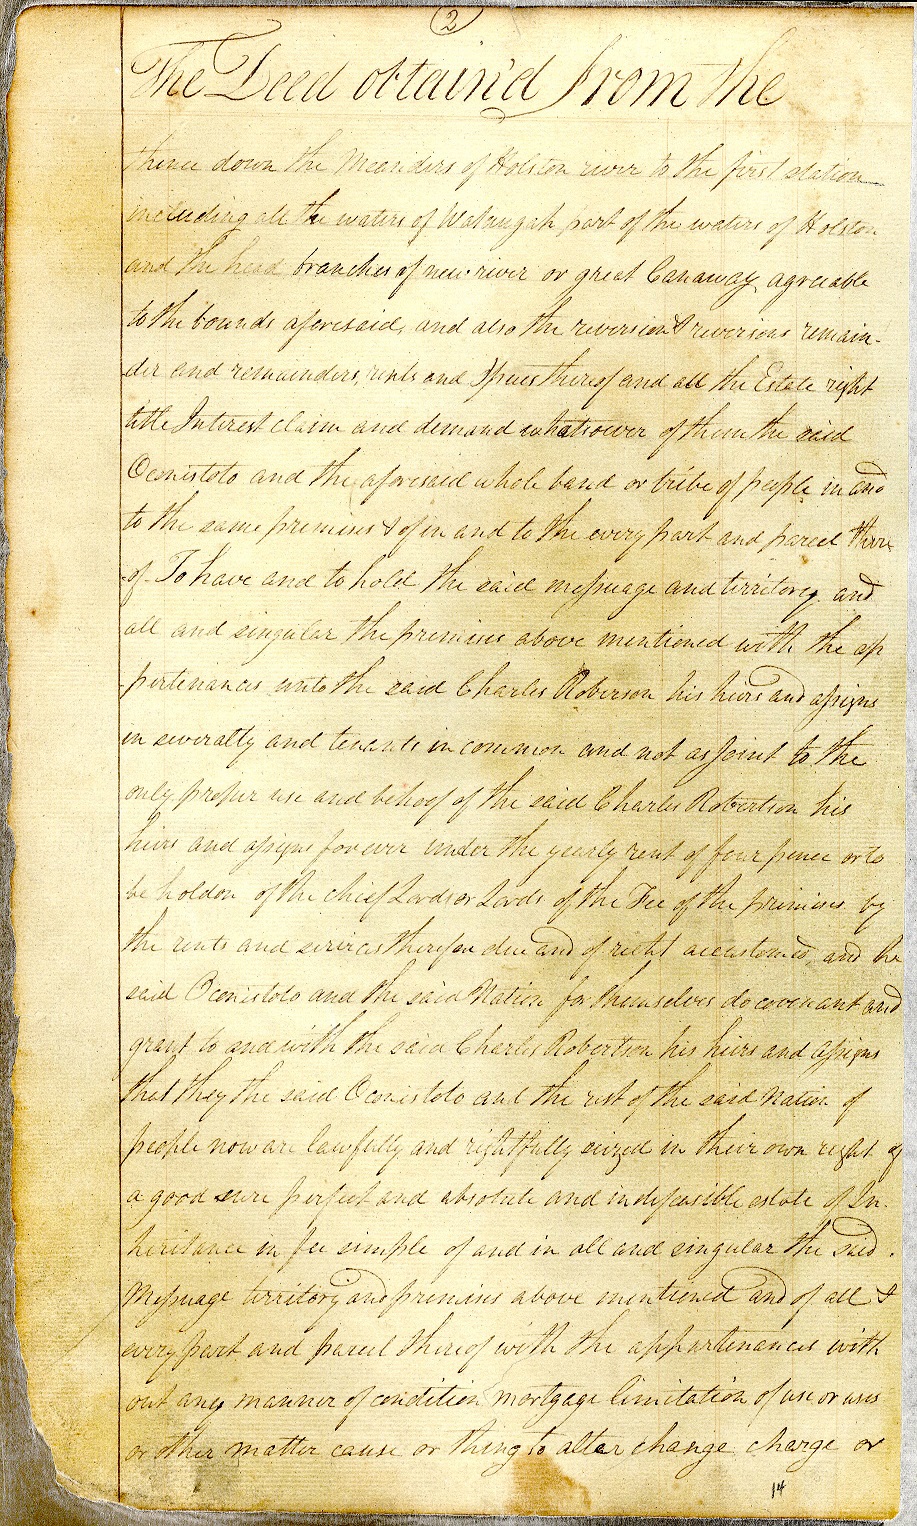 2
The Deed obtain'd from the
thence down the Meanders of Holston river to the first station
including all the waters of Wataugah, part of the waters of Holston
and the head branches of new river or great Canaway, agreeable
to the bounds aforesaid, and also the reversion & reversions remain-
der and remainders, rents and Issues thereof and all the Estate right
title Interest claim and demand whatsoever of them the said
Oconistoto and the aforesaid whole band or tribe of people in and
to the same premises & of in and to the every part and parcel there
of. To have and to hold the said messuage and territory and
all and singular the premises above mentioned with the ap
purtenances unto the said Charles Roberson his heirs and assigns
in severalty and tenants in common and not as Joint to the
only proper use and behoof of the said Charles Robertson his
heirs and assigns forever under the yearly rent of four pence or to
be holden of the chief Lord or Lords of the Fee of the premises by
the rents and services therefor due and of right accustomed, and he
said Oconistoto and the said Nation for themselves do covenant and
grant to and with the said Charles Robertson his heirs and assigns
that they the said Oconistoto and the rest of the said Nation of
people now are lawfully and rightfully seized in their own right of
a good sure perfect and absolute and indefeasible estate of In-
heritance in fee simple of and in all and singular the said
Messuage territory and premises above mentioned and of all &
every part and parcel thereof with the appurtenances with
out any manner of condition mortgage limitation of use or uses
or other matter cause or thing to alter change charge or
14